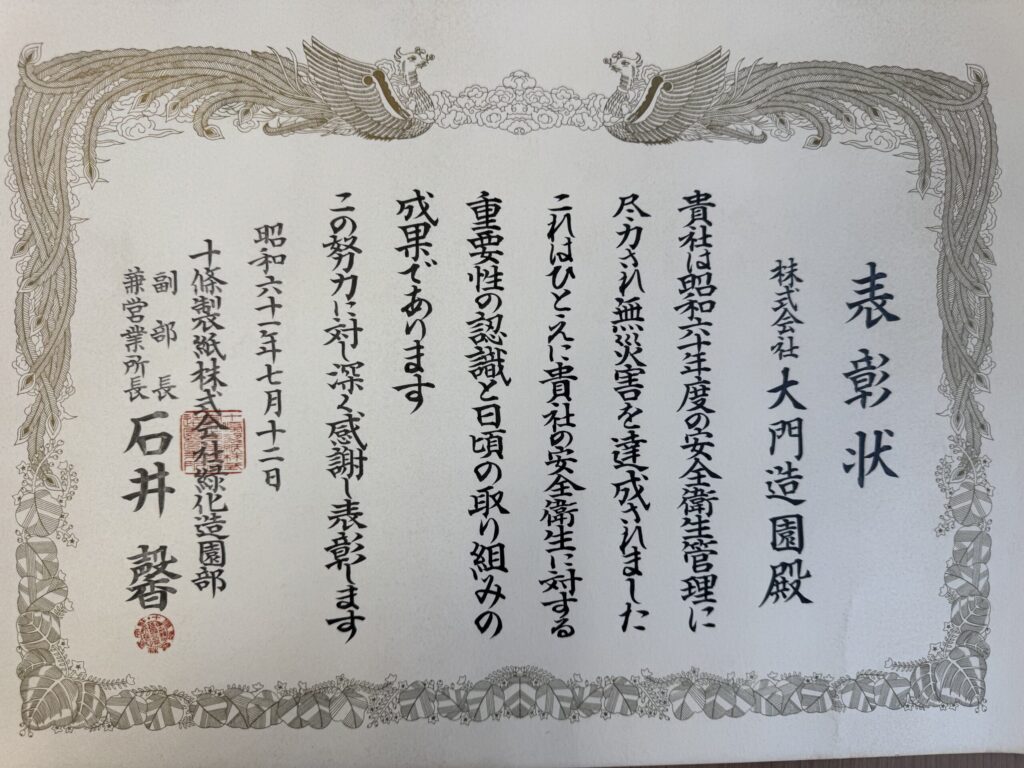 表彰状
株式会社 大門造園殿
貴社は昭和六十年度の安全衛生管理に
尽力され無災害を達成されました
これはひとえに貴社の安全衛生に対する
重要性の認識と日頃の取り組みの
成果であります
この努力に対し深く感謝し表彰します
昭和六十一年七月十二日
十條製紙株式会社緑化造園部
副部長
兼営業所長
石井 馨